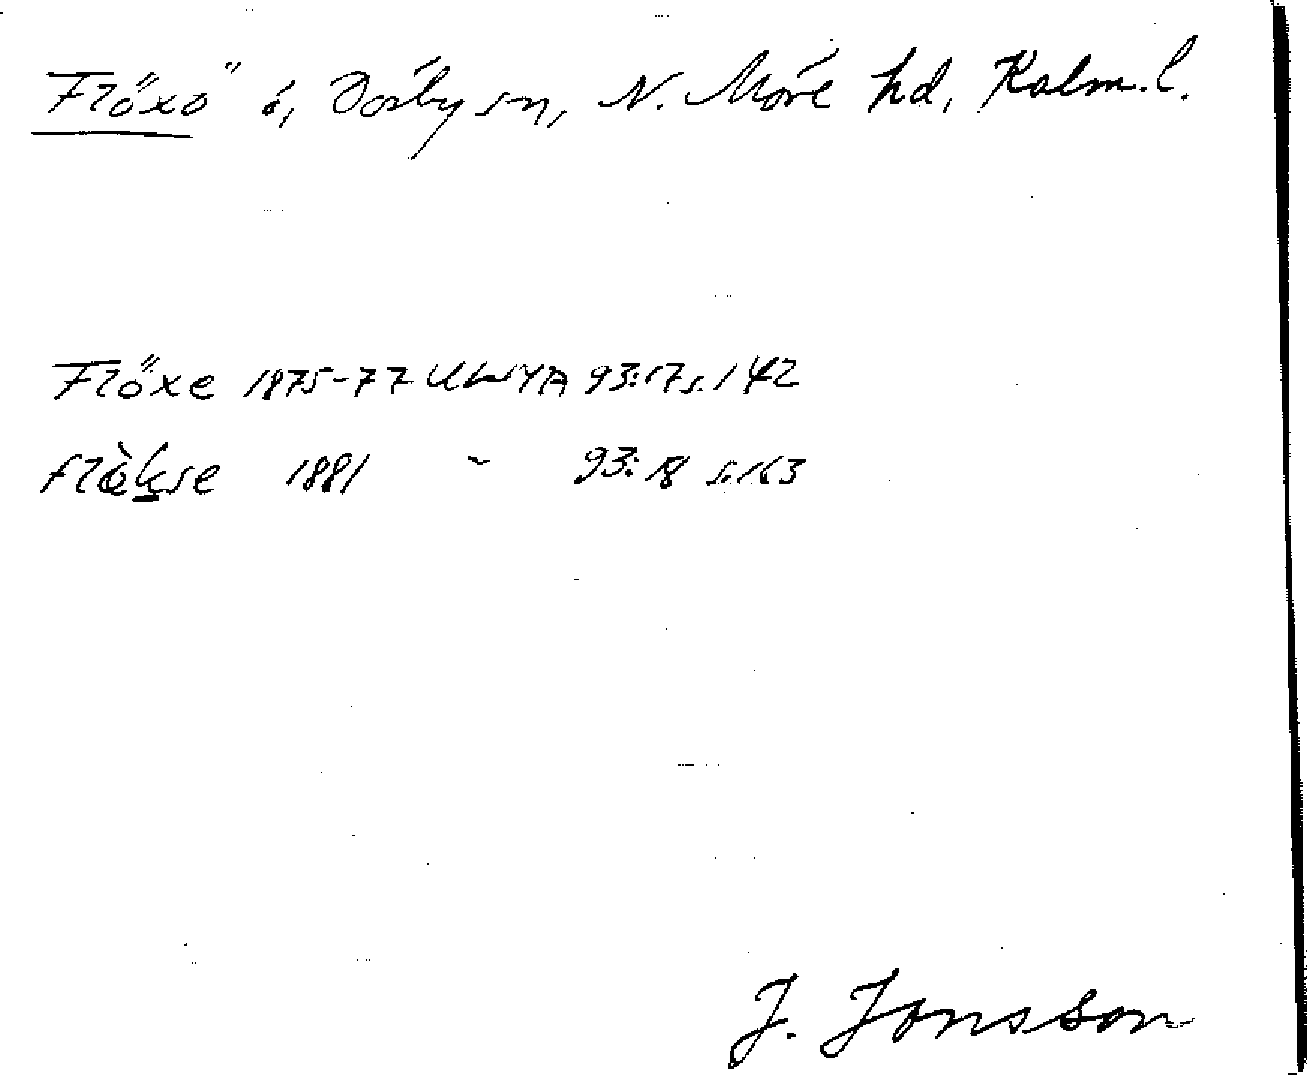 Flöxö ö, Dörby sn, N. Möre hd, Kalm. l.
Flöxe 1875-77 93:17 s. 142
1881 ~ 93:18 s. 163
J. Jonsson